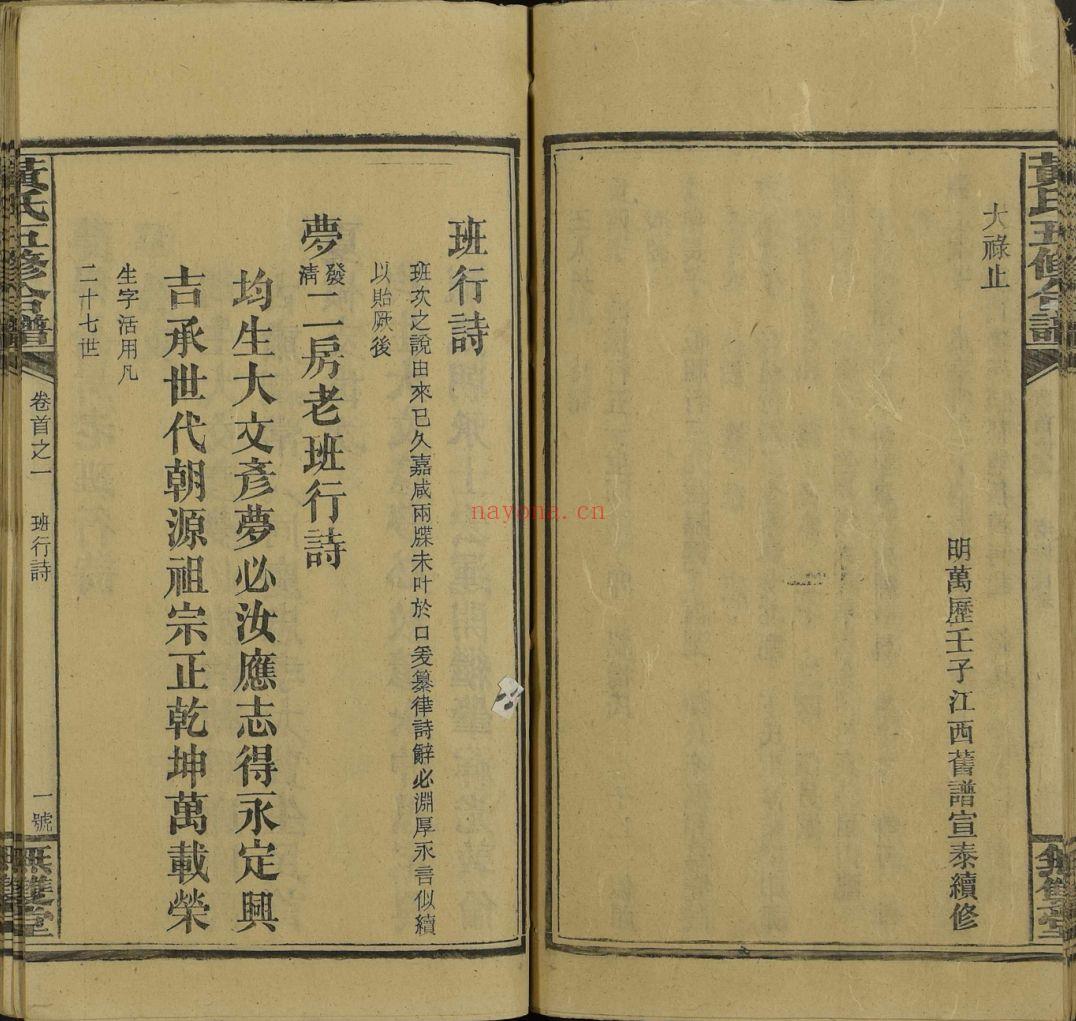 黃氏五修合譜
無雙堂
大祿止
明萬歷壬子江西舊譜宣泰續修
班行詩
班次之說由來已久嘉咸兩牒未叶於口爰纂律詩辭必淵厚永言似續
以貽厥後
夢發清二房老班行詩
均生大文彥夢必汝應志得永定興
吉承世代朝源祖宗正乾坤萬載榮
生字活用凡
二十七世
黃氏五修合譜
卷首之一
班行詩
一號
無雙堂
nayona.cn